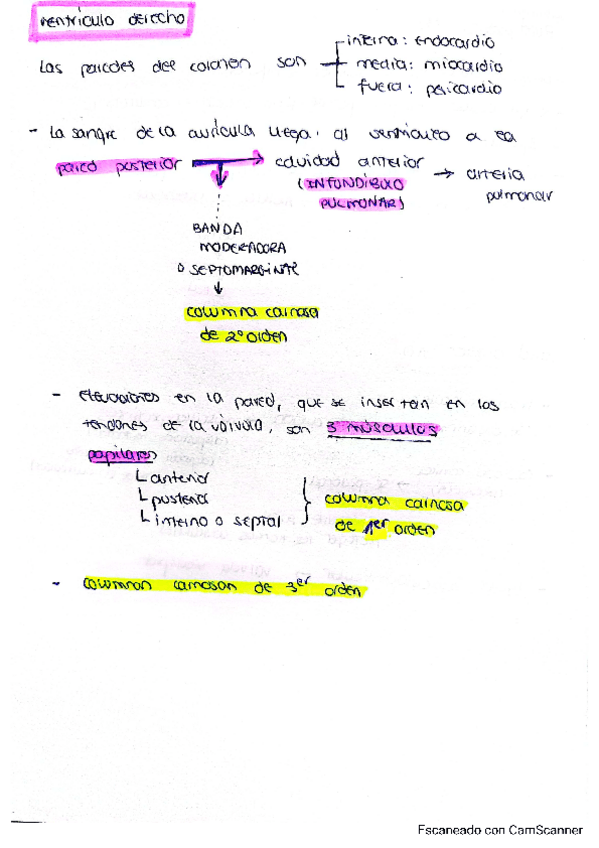 ventrículo derecho
interna: endocardio
Las paredes del corazon son media: miocardio
fuera: pericardio
- La sangre de la aurícula llega al ventrículo a la
pared posterior → cavidad anterior → arteria
(INFUNDÍBULO pulmonar
PULMONAR)
BANDA
MODERADORA
O SEPTOMARGINAL
↓
columna carnosa
de 2º orden
- Elevaciones en la pared, que se insertan en los
tendones de la válvula, son 3 músculos
papilares
anterior
posterior
interno o septal
columna carnosa
de 1er orden
- columnas carnosas de 3er orden
Escaneado con CamScanner